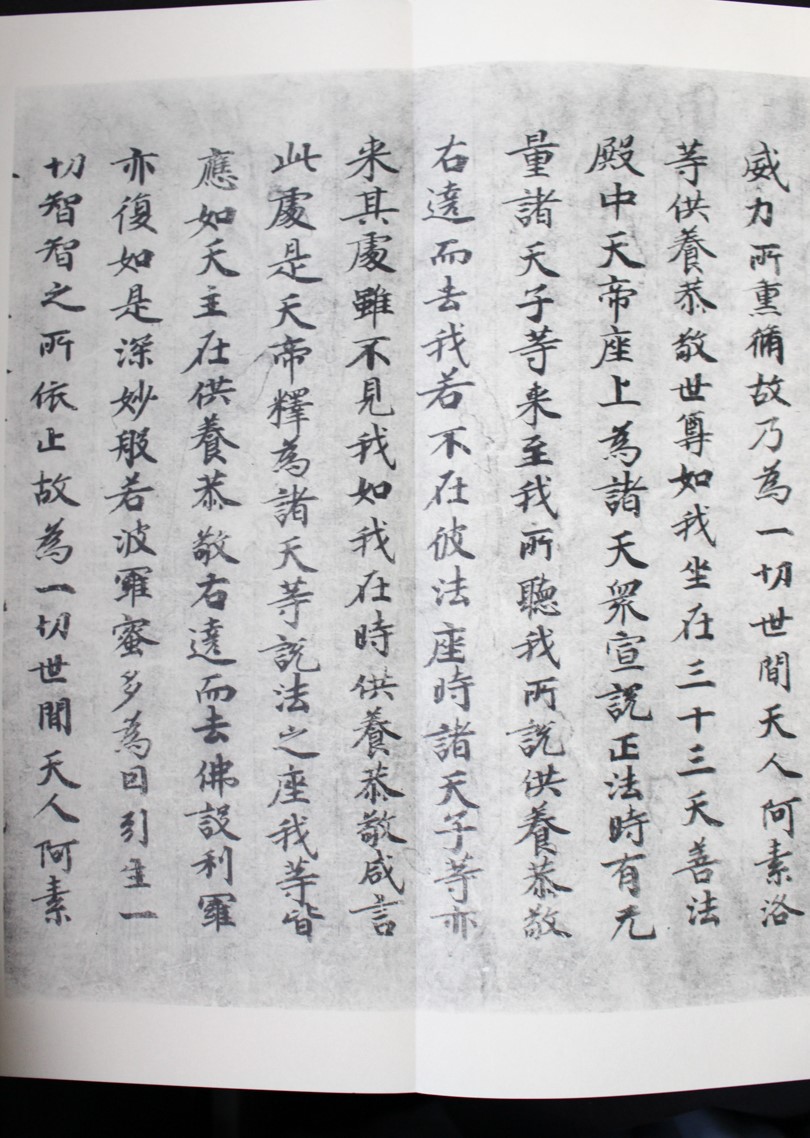 威力所熏脩故乃為一切世間天人阿素洛
等供養恭敬世尊如我坐在三十三天善法
殿中天帝座上為諸天衆宣說正法時有无
量諸天子等来至我所聽我所說供養恭敬
右遶而去我若不在彼法座時諸天子等亦
来其處雖不見我如我在時供養恭敬咸言
此處是天帝釋為諸天等說法之座我等皆
應如天主在供養恭敬右遶而去佛設利羅
亦復如是深妙般若波羅蜜多為因引生一
切智智之所依止故為一切世間天人阿素